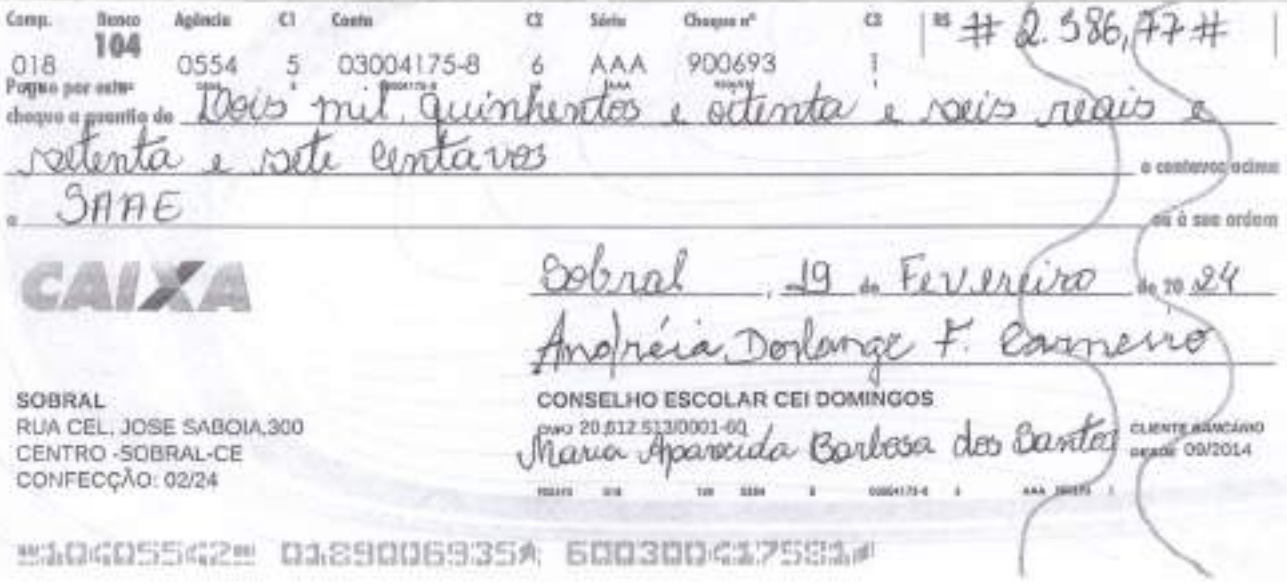 Comp. Banco Agência C1 Conta C2 Série Cheque nº C3 R$ # 2.586,77 #
018 104 0554 5 03004175-8 6 AAA 900693 1
Pague por este
cheque a quantia de Dois mil, quinhentos e oitenta e seis reais e
setenta e sete centavos e centavos acima
a SAAE ou à sua ordem
CAIXA
Sobral, 19 de Fevereiro de 20 24
Andréia Dorlange F. Carneiro
SOBRAL
RUA CEL. JOSE SABOIA,300
CENTRO -SOBRAL-CE
CONFECÇÃO: 02/24
CONSELHO ESCOLAR CEI DOMINGOS
CNPJ 20.612.513/0001-60
Maria Aparecida Barbosa dos Santos
CLIENTE BANCÁRIO
DESDE 09/2014
10405542 0189006935 600300417581